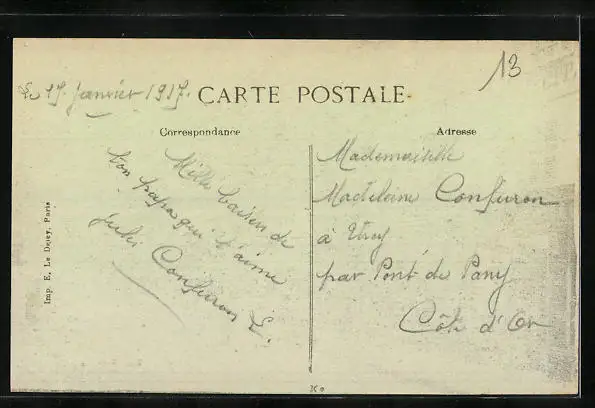 Le 17. Janvier 1917.
13
CARTE POSTALE
Correspondance
Adresse
Mille baisers de
ton papa qui t'aime
Confuron L.
Mademoiselle
Madelaine Confuron
à
par Pont de Pany
Côte d'Or
Imp. E. Le Deley, Paris